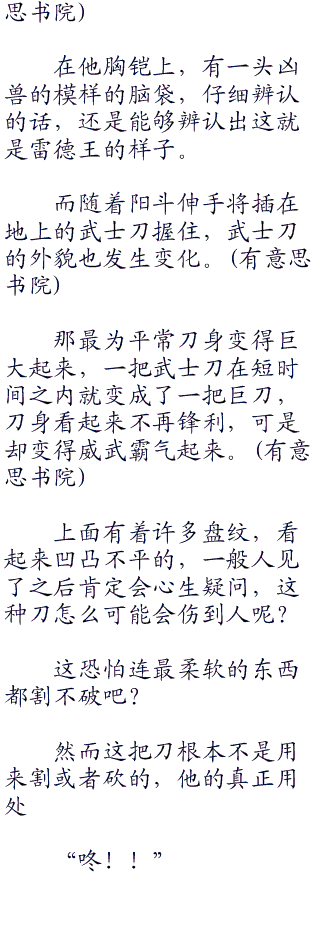 思书院)
在他胸铠上，有一头凶
兽的模样的脑袋，仔细辨认
的话，还是能够辨认出这就
是雷德王的样子。
而随着阳斗伸手将插在
地上的武士刀握住，武士刀
的外貌也发生变化。(有意思
书院)
那最为平常刀身变得巨
大起来，一把武士刀在短时
间之内就变成了一把巨刀，
刀身看起来不再锋利，可是
却变得威武霸气起来。(有意
思书院)
上面有着许多盘纹，看
起来凹凸不平的，一般人见
了之后肯定会心生疑问，这
种刀怎么可能会伤到人呢？
这恐怕连最柔软的东西
都割不破吧？
然而这把刀根本不是用
来割或者砍的，他的真正用
处
“咚！！”